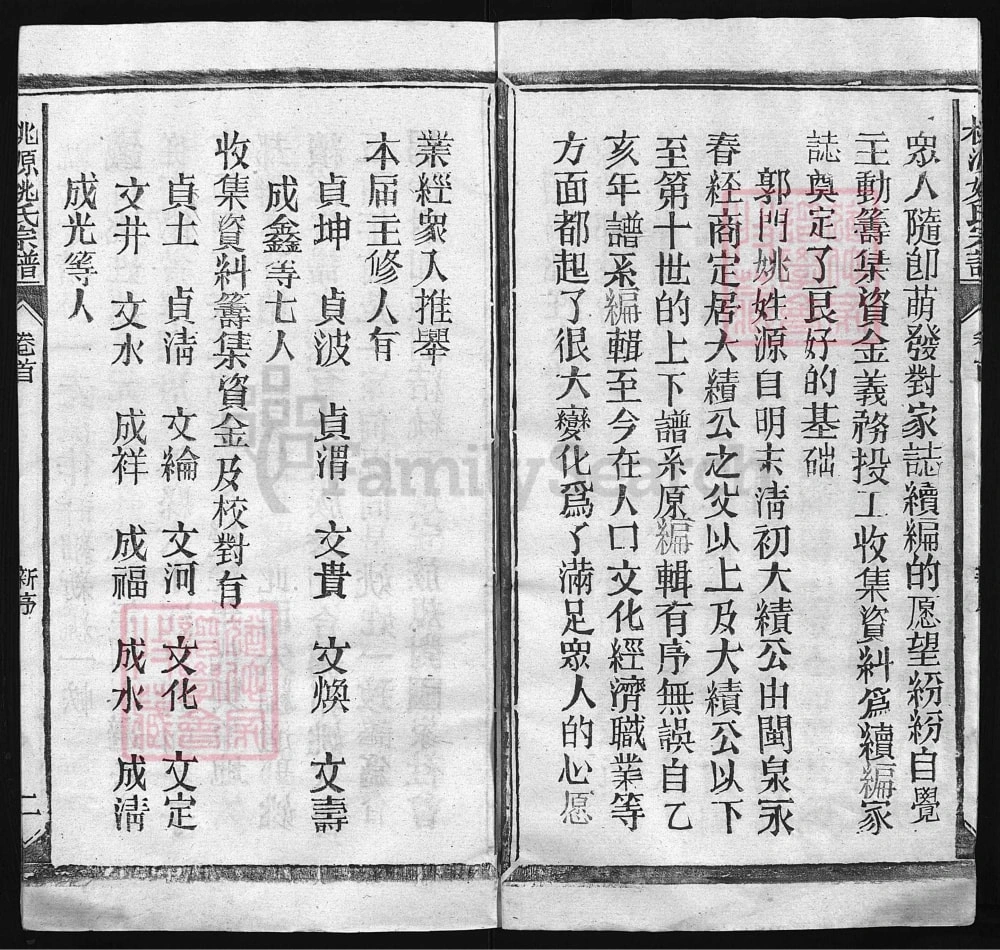 眾人隨卽萌發對家誌續編的愿望紛紛自覺
主動籌集資金義務投工收集資料爲續編家
誌奠定了良好的基础
郭門姚姓源自明末淸初大績公由閩泉永
春経商定居大績公之父以上及大績公以下
至第十世的上下譜系原編輯有序無誤自乙
亥年譜系編輯至今在人口文化經濟職業等
方面都起了很大變化爲了滿足眾人的心愿
業經眾人推舉
本屆主修人有
貞坤 貞波 貞渭 文貴 文煥 文壽
成鑫等七人
收集資料籌集資金及校對有
貞土 貞淸 文綸 文河 文化 文定
文井 文水 成祥 成福 成水 成淸
成光等人
桃源姚氏宗譜 卷首 新序 二
FamilySearch